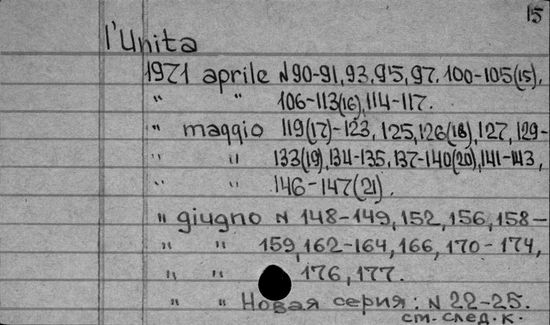 15
l'Unita
1971 aprile N 90-91, 93, 95, 97, 100-105(15),
" " 106-113(16), 114-117.
" maggio 119(17)-123, 125, 126(18), 127, 129-
" " 133(19), 134-135, 137-140(20), 141-143,
" " 146-147(21).
" giugno N 148-149, 152, 156, 158-
" " 159, 162-164, 166, 170-174,
" " 176, 177.
" " Новая серия: N 22-25.
см. след. к.